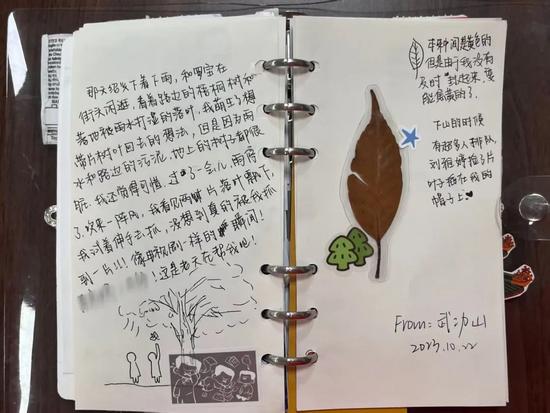 那天绍兴下着下雨，和周宝在
街头闲逛，看着路边的梧桐树和
落地被雨水打湿的落叶，我萌生了想
带片树叶回去的想法，但是因为雨
水和路边的污泥，地上的树叶都很
脏，我还觉得可惜，过了一会儿，雨停
了，吹来一阵风，我看见两片落叶飘下，
我试着伸手去抓，没想到真的被我抓
到一片!!! 像电视剧一样的瞬间!
！这是老天在帮我吧!
本来中间是黄色的
但是由于我没有
及时封起来 变
能焦黄的了.
下山的时候
有超多人排队,
刘雅婷捡了片
叶子插在我的
帽子上
From: 武功山
2023.10.22